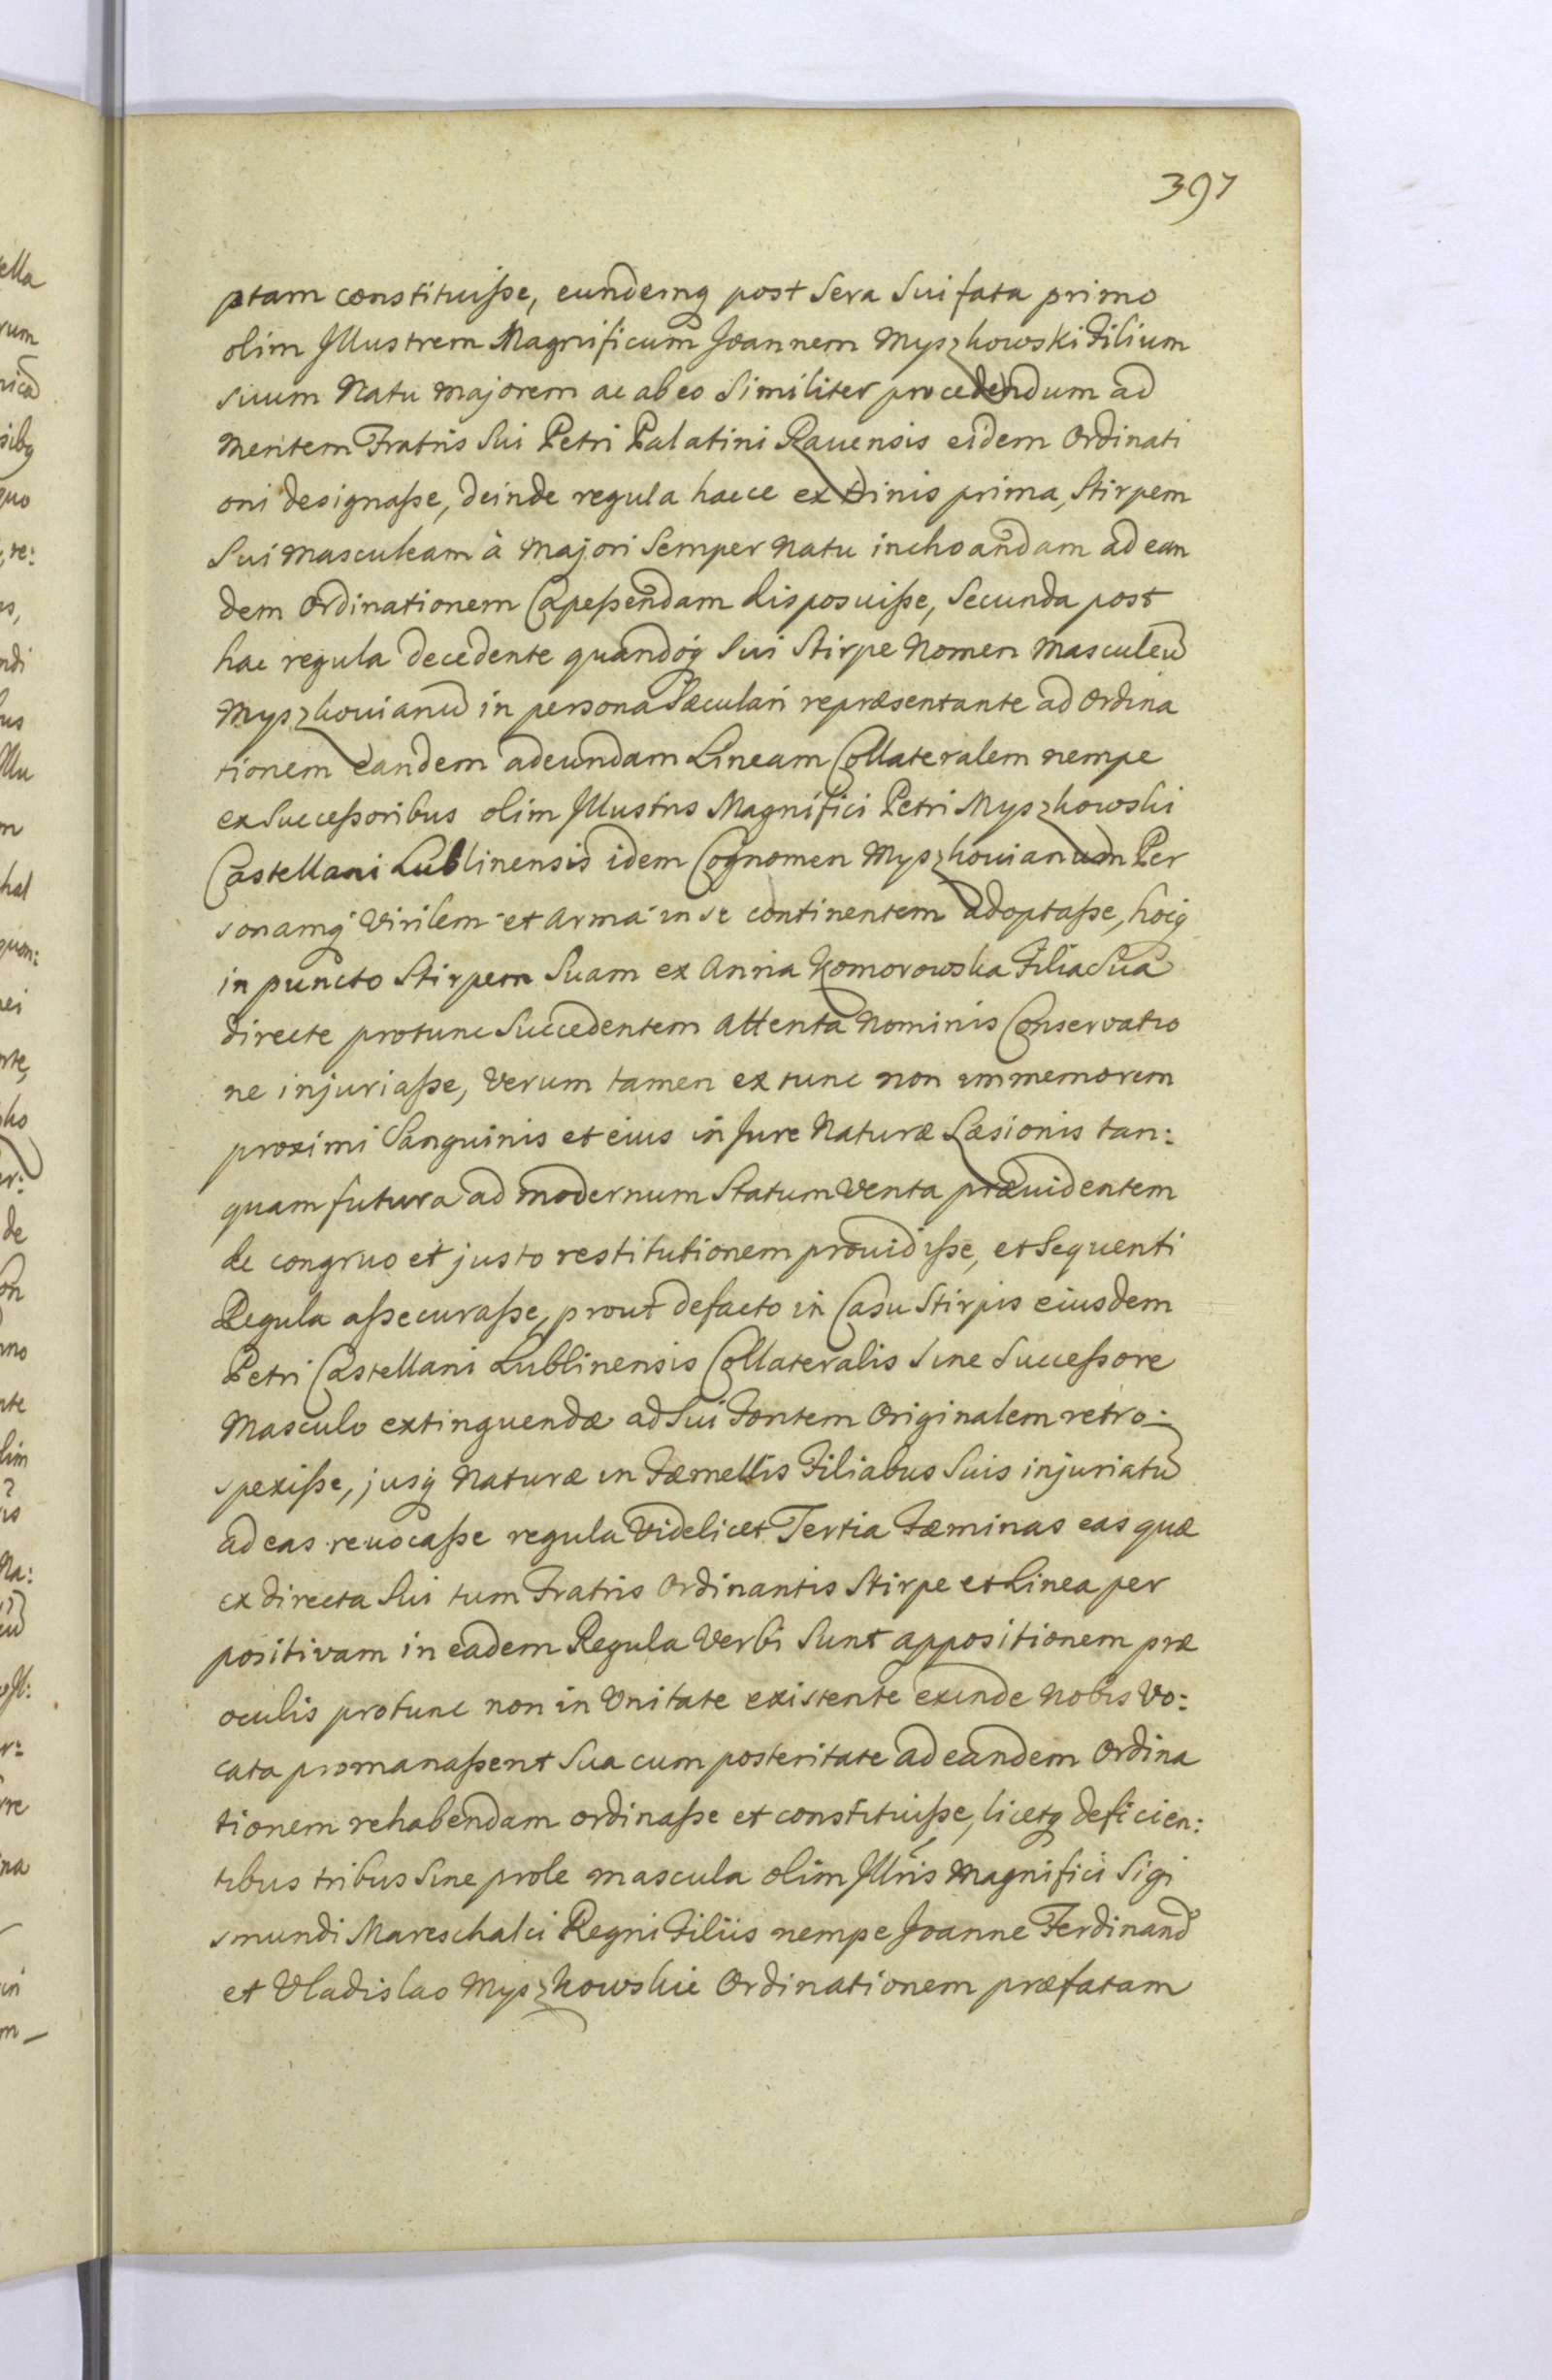 397
ptam constituiſse, eundemq post Sera Sui fata primo
olim Jllustrem Magnificum Joannem Myszkowski Filium
suum Natu majorem ac ab eo Similiter procedendum ad
mentem Fratris Sui Petri Palatini Rauensis eidem Ordinati
oni designaſse, deinde regula haece ex Dinis prima, Stirpem
Sui masculeam à majori Semper Natu inchoandam ad ean
dem Ordinationem Capeſsendam disposuiſse, Secunda post
hac regula decedente quandoq Sui Stirpe Nomen masculeũ
Myszkouianũ in persona Sæculari repræsentante ad Ordina
tionem eandem adeundam Lineam Collateralem nempe
ex Succeſsoribus olim Jllustris Magnifici Petri Myszkowski
Castellani Lublinensis idem Cognomen Myszkouianum Per
sonamq Virilem et Arma in se continentem adoptaſse, hocq
in puncto Stirpem Suam ex Anna Komorowska Filia Sua
directe protunc Succedentem Attenta Nominis Conservatio
ne injuriaſse, Verum tamen ex tunc non immemorem
proximi Sanguinis et eius in Jure Naturæ Læsionis tan:
quam futura ad modernum Statum Venta præuidentem
de congruo et justo restitutionem prouidiſse, et Sequenti
Regula aſsecuraſse, prout defacto in Casu Stirpis eiusdem
Petri Castellani Lublinensis Collateralis Sine Succeſsore
Masculo extinguendæ ad Sui Fontem Originalem retro:
spexiſse, jusq Naturæ in Fæmellis Filiabus Suis injuriatũ
ad eas reuocaſse regula Videlicet Tertia Fæminas eas quæ
ex directa Sui tum Fratris Ordinantis Stirpe et Linea per
positivam in eadem Regula Verbi Sunt appositionem præ
oculis protunc non in Vnitate existente exinde Nobis Vo:
cata promanaſsent Sua cum posteritate ad eandem Ordina
tionem rehabendam ordinaſse et constituiſse, licetq deficien:
tibus tribus Sine prole mascula olim Jllris Magnifici Sigi
smundi Mareschalci Regni Filiis nempe Joanne Ferdinando
et Vladislao Myszkowskie Ordinationem præfatam